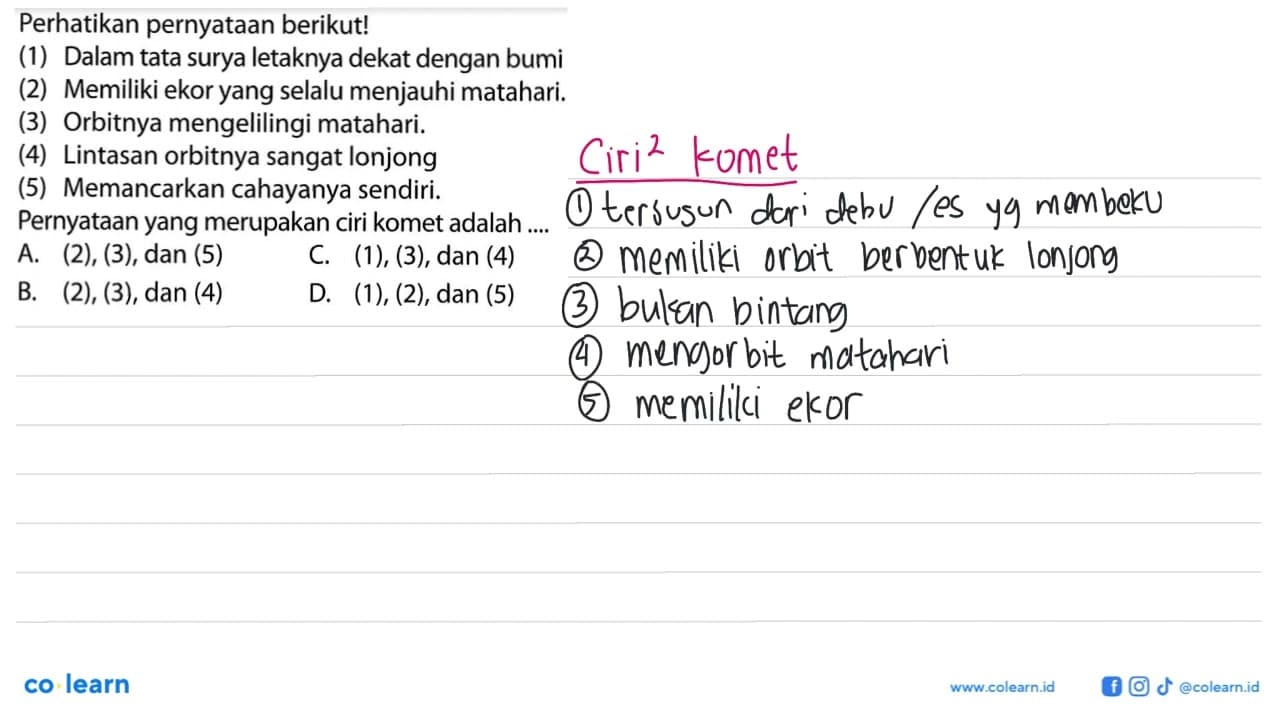 Perhatikan pernyataan berikut!
(1) Dalam tata surya letaknya dekat dengan bumi
(2) Memiliki ekor yang selalu menjauhi matahari.
(3) Orbitnya mengelilingi matahari.
(4) Lintasan orbitnya sangat lonjong
(5) Memancarkan cahayanya sendiri.
Pernyataan yang merupakan ciri komet adalah ....
A. (2), (3), dan (5) C. (1), (3), dan (4)
B. (2), (3), dan (4) D. (1), (2), dan (5)
Ciri² komet
① tersusun dari debu /es yg membeku
② memiliki orbit berbentuk lonjong
③ bukan bintang
④ mengorbit matahari
⑤ memiliki ekor
co learn
www.colearn.id @colearn.id